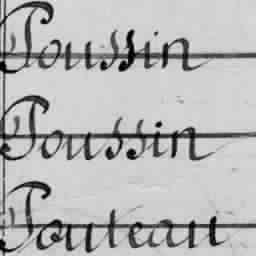 Poussin
Poussin
Pouteau